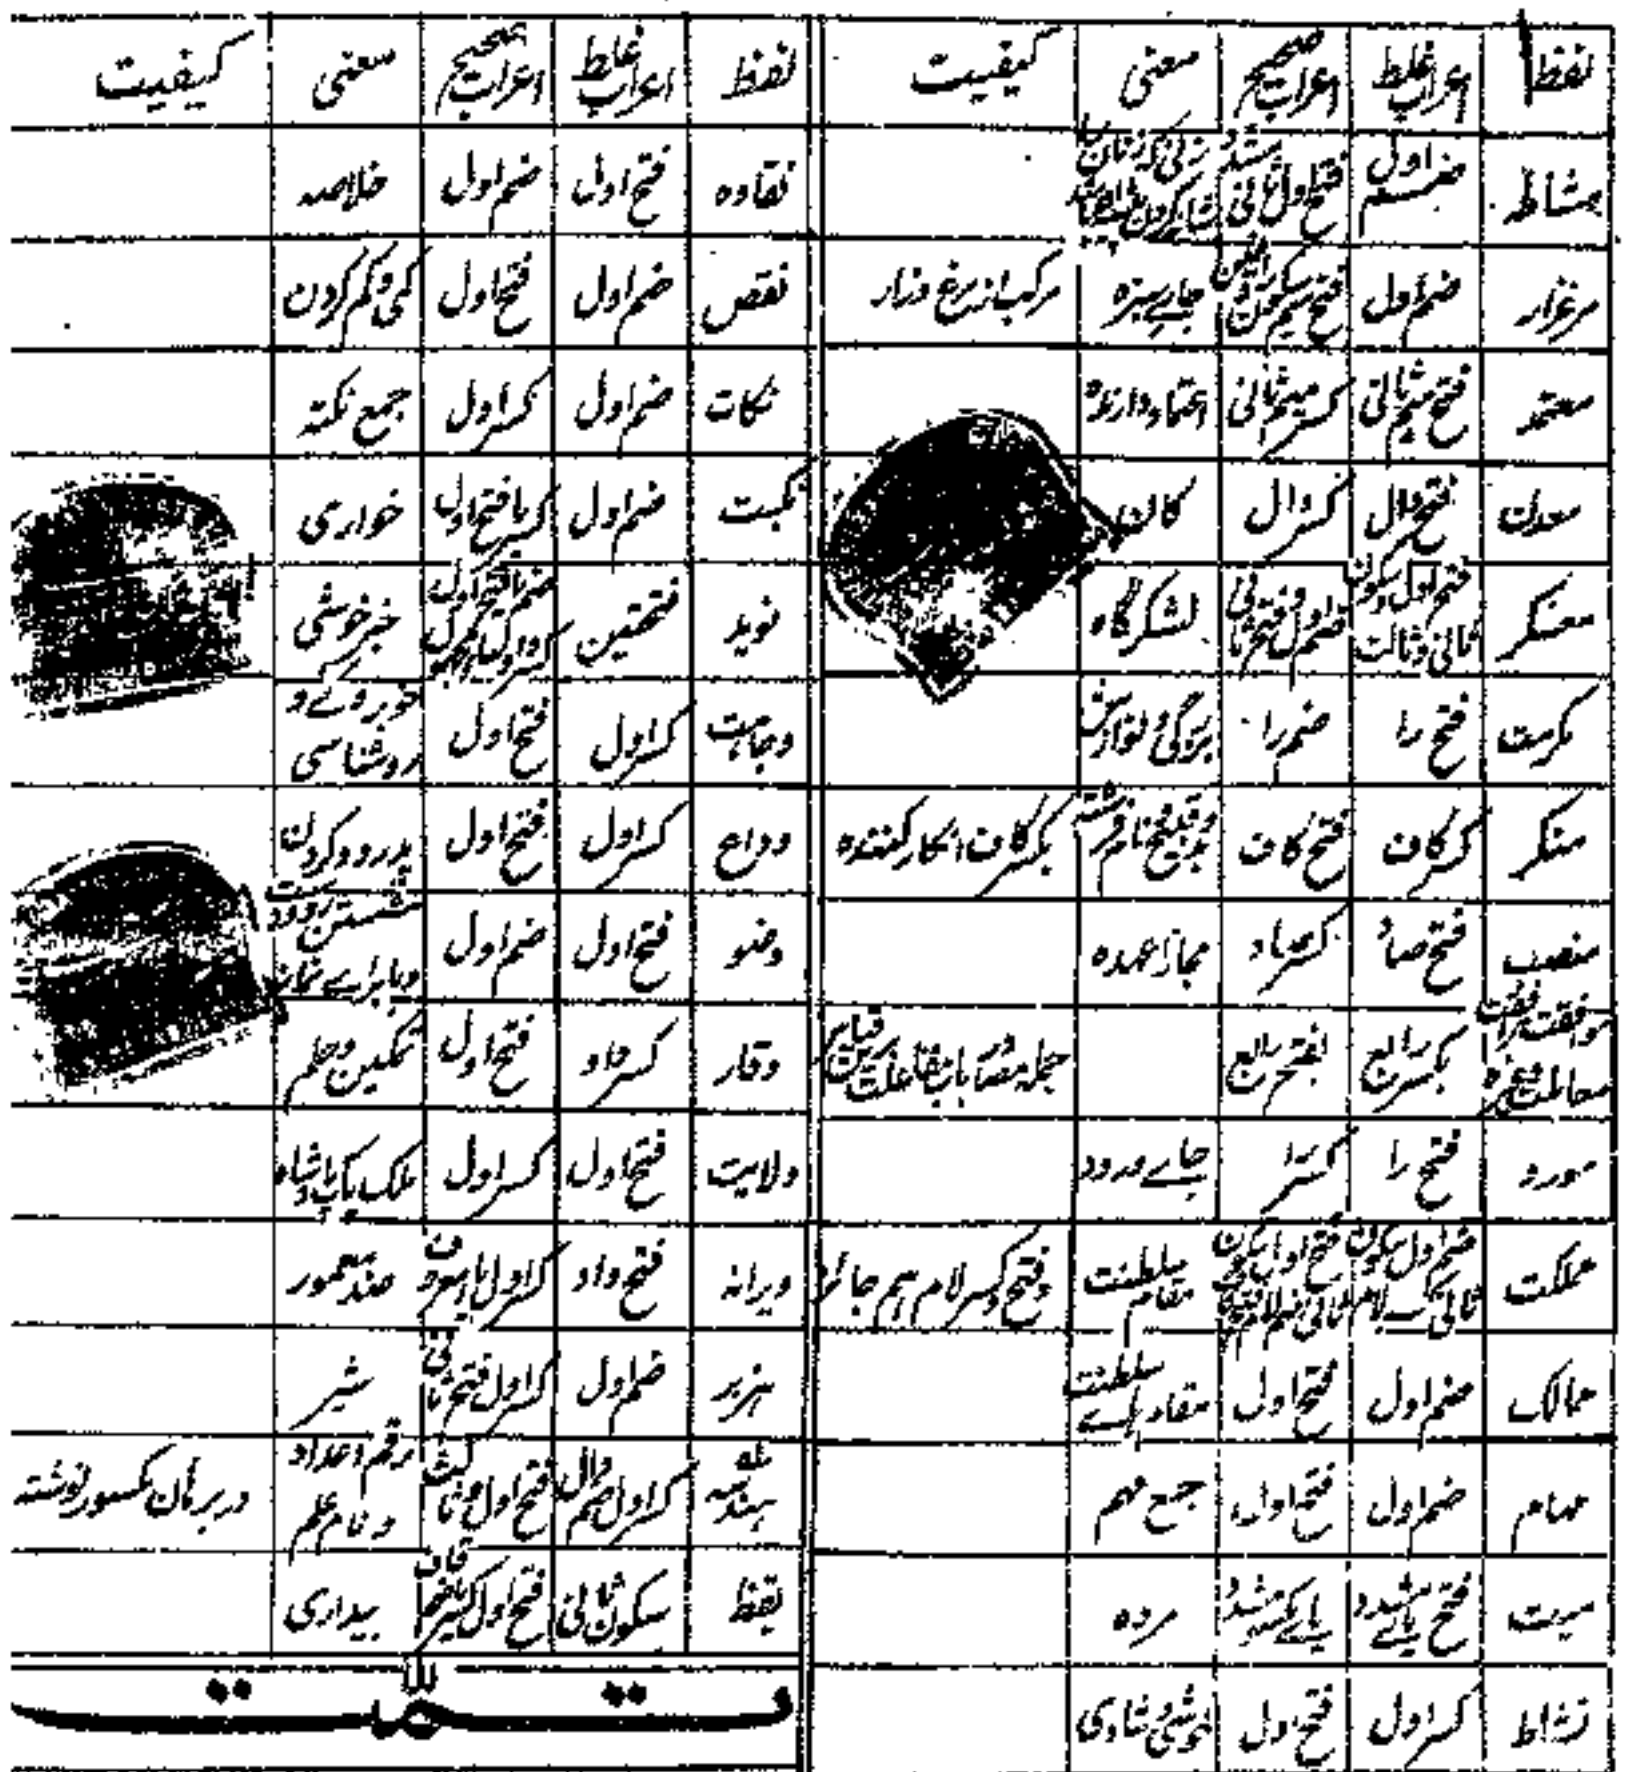 لفظ اعراب غلط اعراب صحیح معنی کیفیت
مشاطہ ضم اول
مرغزار ضم اول فتح میم جاے سبزہ مرکب از مرغ و زار
معتمد فتح میم ثانی کسر میم ثانی اعتماد دارندہ
معدن فتح دال کسر دال کان
معسکر فتح اول و سکون ثانی و ثالث ضم اول و فتح ثانی لشکر گاہ
مکرمت فتح را ضم را بزرگی و نوازش
منکر کسر کاف فتح کاف بکسر کاف انکار کنندہ
منصب فتح صاد کسر صاد مجازا عہدہ
موافقت مرافقت معاملت وغیرہ بکسر رابع بفتح رابع
مورد فتح را کسر را جاے ورود
مملکت ضم اول سکون ثانی مقام سلطنت و فتح و کسر لام ہم جائز
ممالک ضم اول فتح اول مقامہاے سلطنت
مہام ضم اول فتح اول جمع مہم
میت فتح یاے مشدد یاے مکسور مشدد مردہ
نشاط کسر اول فتح اول خوشی و شادی
لفظ اعراب غلط اعراب صحیح معنی کیفیت
نقاوہ فتح اول ضم اول خلاصہ
نقص ضم اول فتح اول کمی و کم کردن
نکات ضم اول کسر اول جمع نکتہ
نکبت ضم اول کسر یا فتح اول خواری
نوید فتحتین خبر خوشی
وجاہت کسر اول فتح اول خوبروے و روشناسی
وداع کسر اول فتح اول پدرود کردن
وضو فتح اول ضم اول شستن دست و رو و پا براے نماز
وقار کسر واو فتح اول تمکین و حلم
ولایت فتح اول کسر اول ملک یک بادشاہ
ویرانہ فتح واو کسر اول یاے معروف ضد معمور
ہزبر ضم اول کسر اول فتح ثانی شیر
ہندسہ کسر اول ضم دال فتح اول و ثالث رقم و اعداد و نام علم در برہان مکسور نوشتہ
یقظ سکون ثانی بیداری
تمت